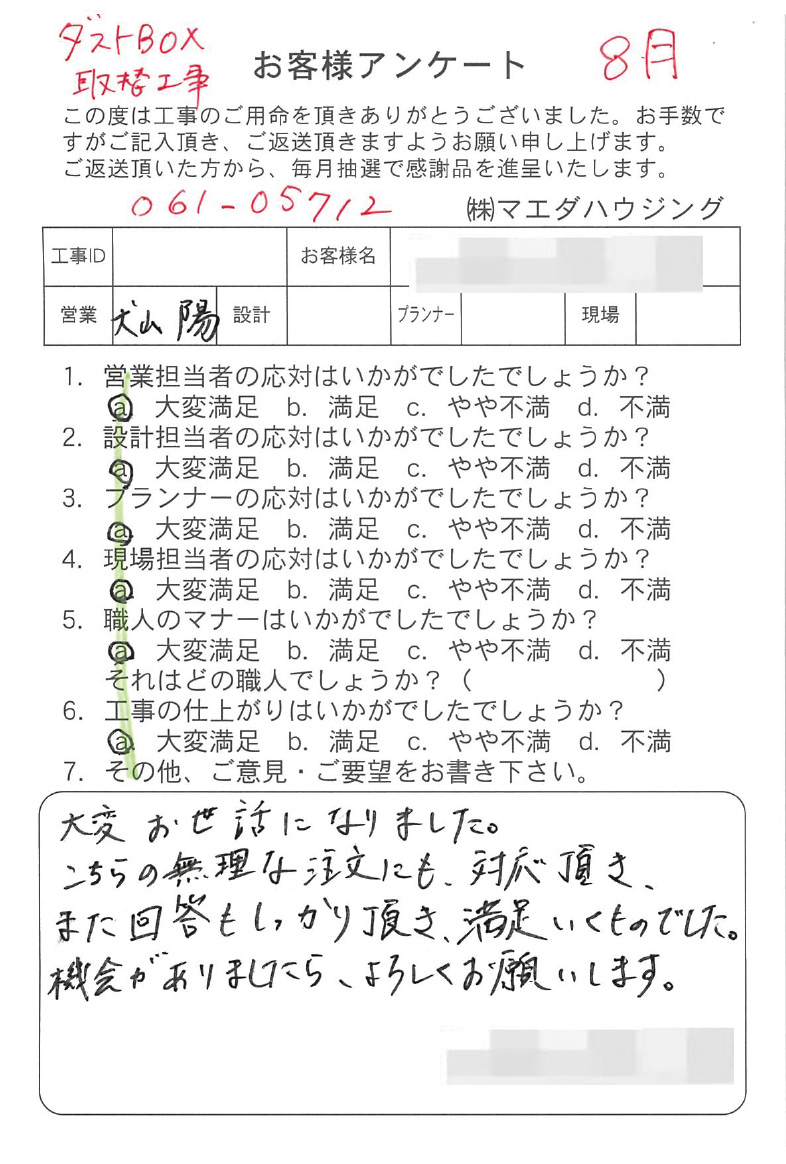 ダストBOX
取替工事
お客様アンケート
8月
この度は工事のご用命を頂きありがとうございました。お手数で
すがご記入頂き、ご返送頂きますようお願い申し上げます。
ご返送頂いた方から、毎月抽選で感謝品を進呈いたします。
061-05712
㈱マエダハウジング
工事ID お客様名
営業 犬山 陽 設計 プランナー 現場
1. 営業担当者の応対はいかがでしたでしょうか？
a. 大変満足 b. 満足 c. やや不満 d. 不満
2. 設計担当者の応対はいかがでしたでしょうか？
a. 大変満足 b. 満足 c. やや不満 d. 不満
3. プランナーの応対はいかがでしたでしょうか？
a. 大変満足 b. 満足 c. やや不満 d. 不満
4. 現場担当者の応対はいかがでしたでしょうか？
a. 大変満足 b. 満足 c. やや不満 d. 不満
5. 職人のマナーはいかがでしたでしょうか？
a. 大変満足 b. 満足 c. やや不満 d. 不満
それはどの職人でしょうか？（ ）
6. 工事の仕上がりはいかがでしたでしょうか？
a. 大変満足 b. 満足 c. やや不満 d. 不満
7. その他、ご意見・ご要望をお書き下さい。
大変お世話になりました。
こちらの無理な注文にも、対応頂き、
また回答もしっかり頂き、満足いくものでした。
機会がありましたら、よろしくお願いします。